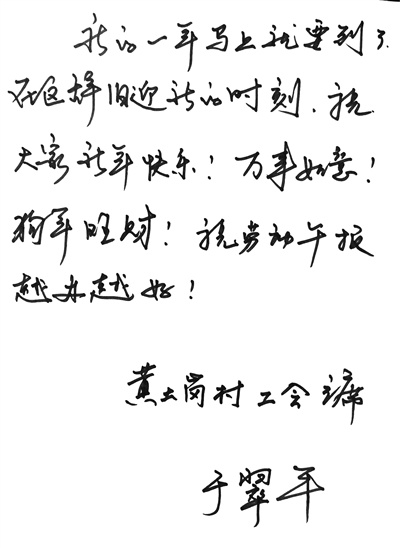 新的一年马上就要到了.
在这辞旧迎新的时刻、祝
大家新年快乐！万事如意！
狗年旺财！祝劳动午报
越办越好！
黄土岗村工会主席
于翠平